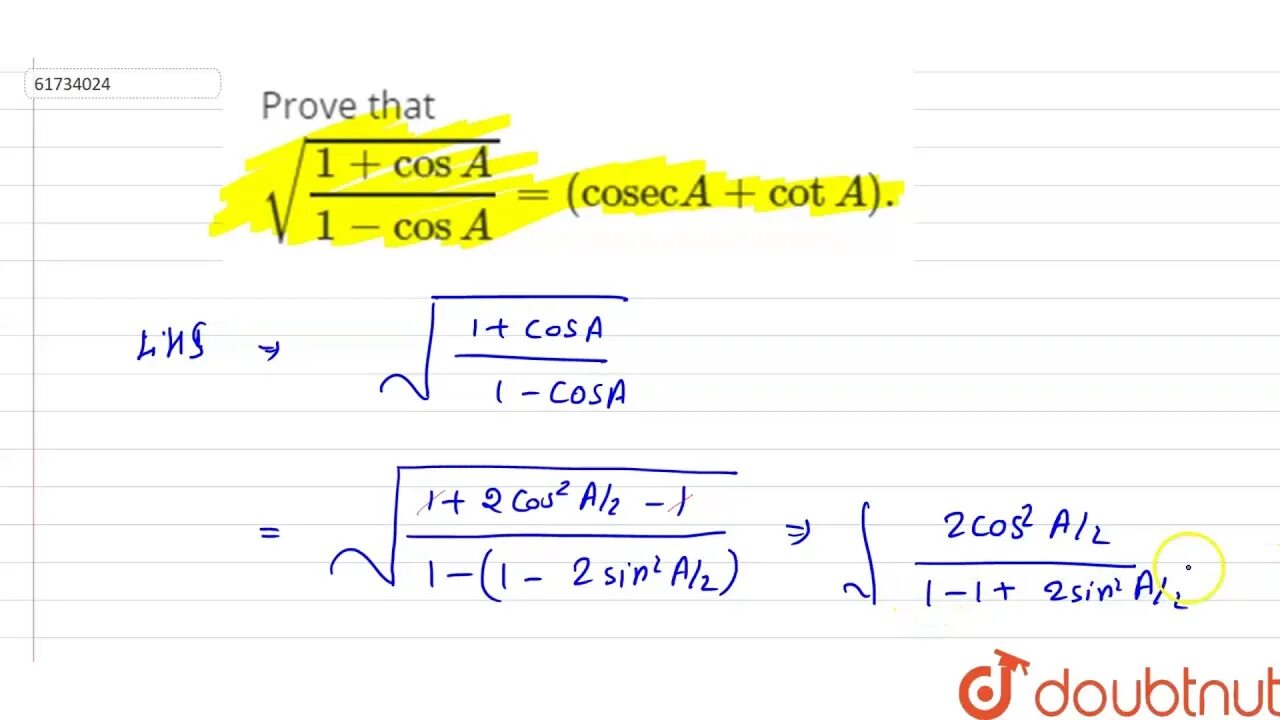 61734024
Prove that
√((1 + cos A)/(1 − cos A)) = (cosecA + cot A).
LHS ⇒ √((1 + cosA)/(1 − cosA))
= √((1 + 2cos² A/2 − 1)/(1 − (1 − 2sin² A/2))) ⇒ √((2cos² A/2)/(1 − 1 + 2sin² A/2))
doubtnut